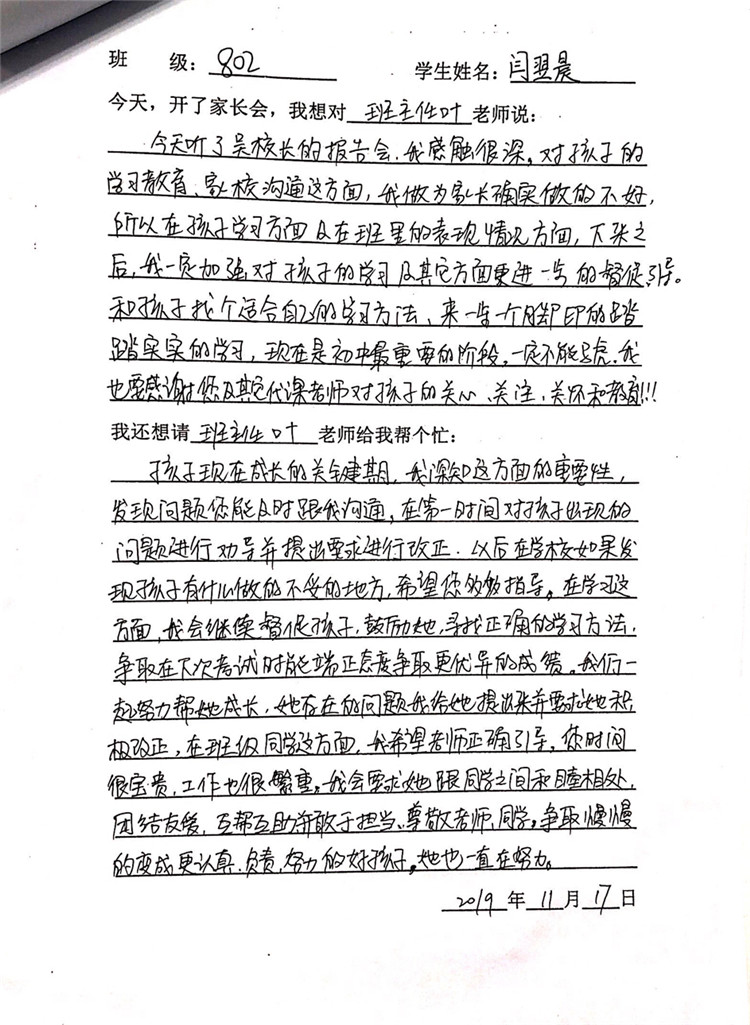 班 级：802 学生姓名：闫翌晨
今天，开了家长会，我想对 班主任叶 老师说：
今天听了吴校长的报告会，我感触很深，对孩子的
学习教育、家校沟通这方面，我做为家长确实做的不好，
所以在孩子学习方面及在班里的表现情况方面，下来之
后，我一定加强对孩子的学习及其它方面更进一步的督促引导。
和孩子找个适合自己的学习方法，来一步一个脚印的踏
踏实实的学习，现在是初中最重要的阶段，一定不能马虎，我
也要感谢您及其它代课老师对孩子的关心、关注、关怀和教育!!!
我还想请 班主任叶 老师给我帮个忙：
孩子现在成长的关键期，我深知这方面的重要性，
发现问题您能及时跟我沟通，在第一时间对孩子出现的
问题进行劝导并提出要求进行改正．以后在学校如果发
现孩子有什么做的不妥的地方，希望您能够指导。在学习这
方面，我会继续督促孩子，鼓励她，寻找正确的学习方法，
争取在下次考试时能端正态度争取更优异的成绩。我们一
起努力帮她成长，她存在的问题我给她提出来并要求她积
极改正，在班级同学这方面，我希望老师正确引导，您时间
很宝贵，工作也很繁重，我会要求她跟同学之间和睦相处，
团结友爱，互帮互助并敢于担当、尊敬老师、同学。争取慢慢
的变成更认真、负责，努力的好孩子，她也一直在努力。
2019 年 11 月 17 日